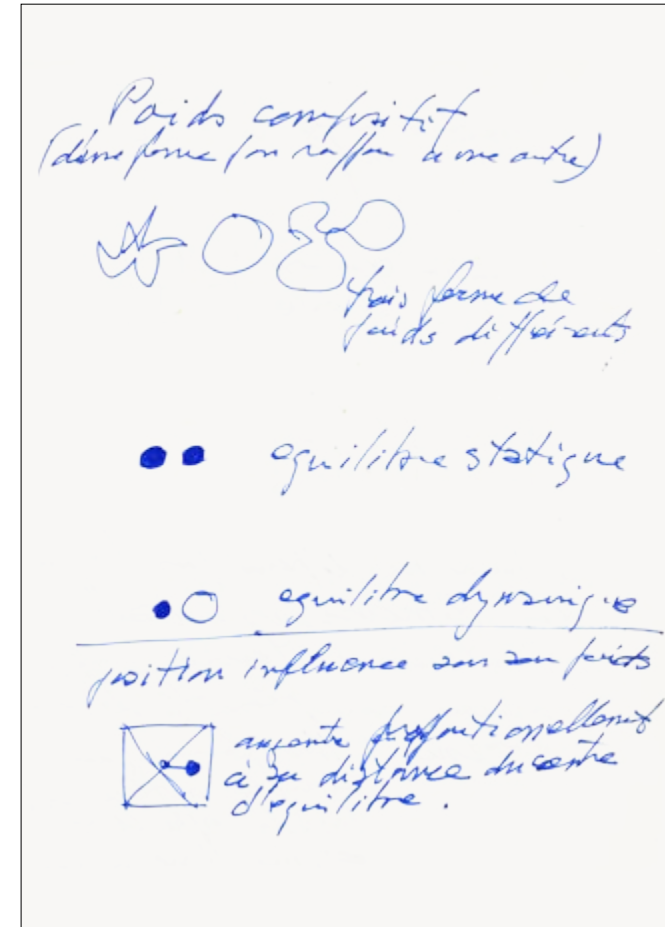 Poids compositif
(d'une forme par rapport à une autre)
trois forme de
poids différents
equilibre statique
equilibre dynamique
position influence son poids
augmente proportionellement
à sa distance du centre
d'equilibre.